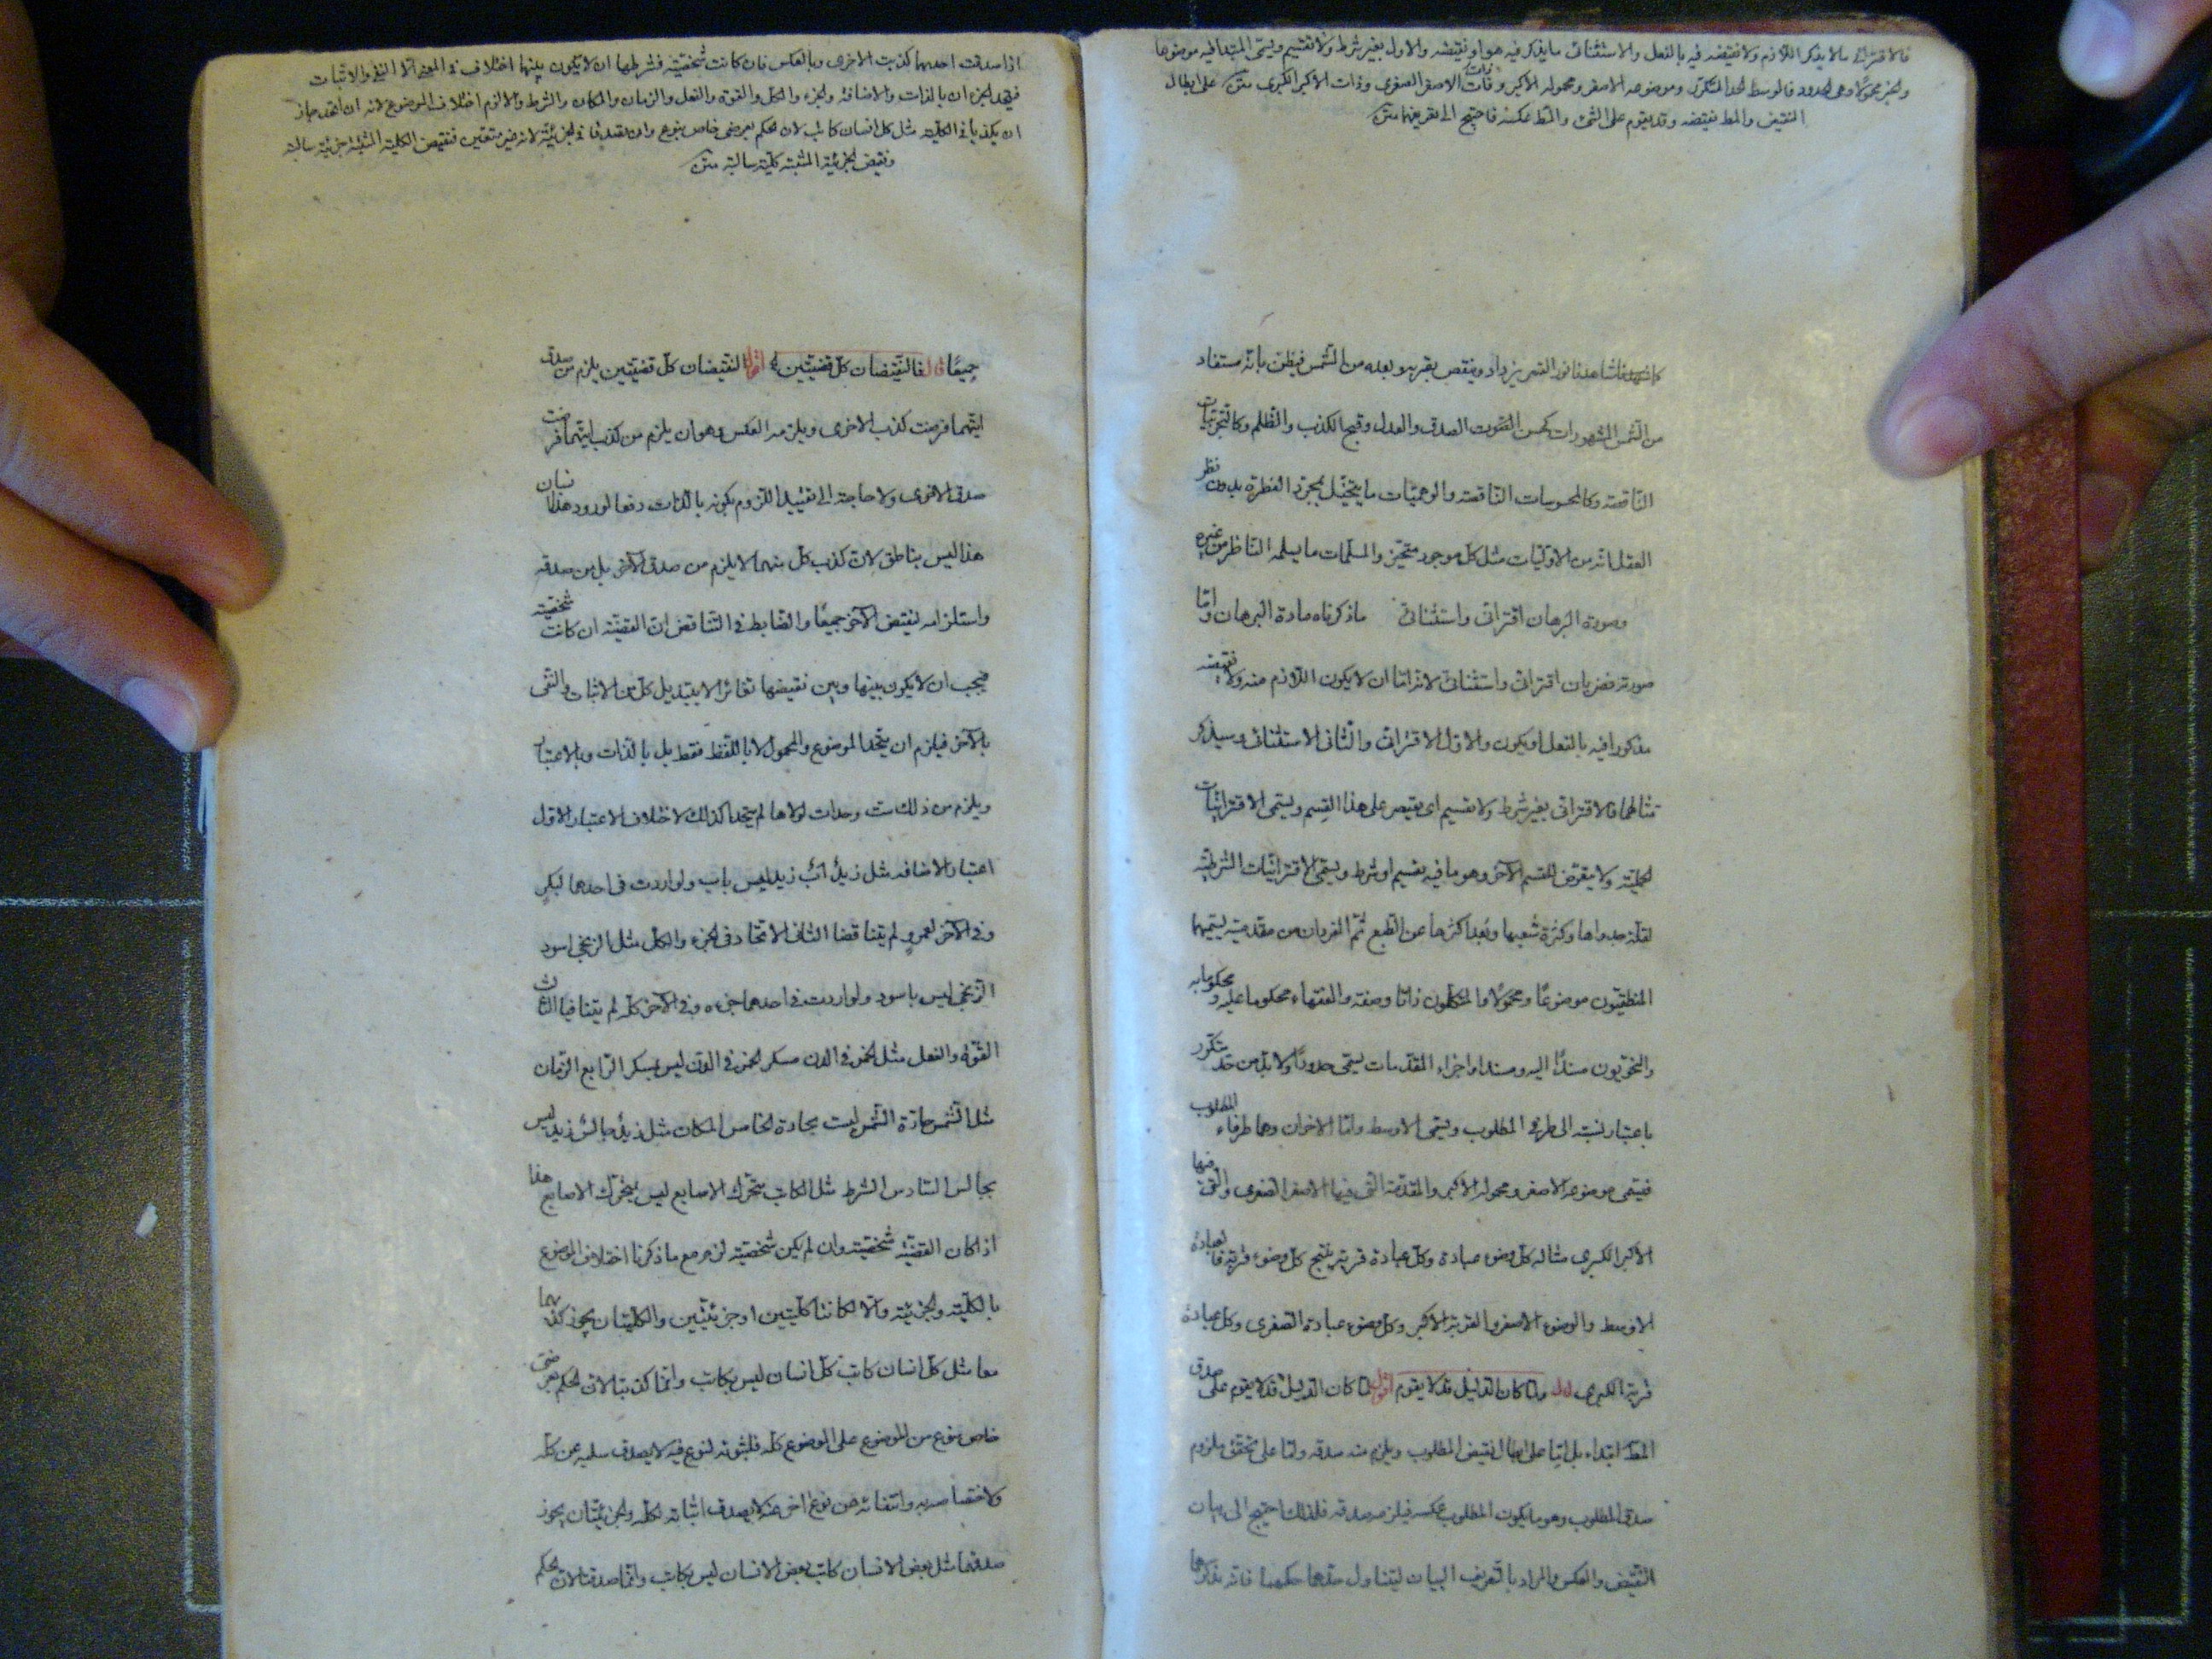 فالاقتراني ما لا يذكر اللازم ولا نقيضه فيه بالفعل والاستثنائي ما يذكر فيه هو او نقيضه والاول بغير شرط ولا تقسيم ويسمى المبتدا فيه موضوعا
والخبر محمولا وهي الحدود فالوسط الحد المتكرر وموضوعه الاصغر ومحموله الاكبر وذات الاصغر الصغرى وذات الاكبر الكبرى متن على ابطال
النقيض والمط نقيضه وقد يقوم على الشئ والمط عكسه فاحتيج الى تعريفهما متن
كما شاهدنا نور القمر يزداد وينقص بقربه وبعده من الشمس فيظن بانه مستفاد
من الشمس المشهورات كحسن الصدق والعدل وقبح الكذب والظلم وكالتجربيات
الناقصة وكالمحسوسات الناقصة والوهميات ما يتخيل بمجرد الفطرة بدون نظر
العقل انه من الاوليات مثل كل موجود متحيز والمسلمات ما يسلمه الناظر من غيره
وصورة البرهان اقتراني واستثنائي ما ذكرناه مادة البرهان واما
صورته فضربان اقتراني واستثنائي لانه اما ان لا يكون اللازم منه ولا نقيضه
مذكورا فيه بالفعل او يكون والاول الاقتراني والثاني الاستثنائي وسيذكر
مثالهما فالاقتراني بغير شرط ولا تقسيم اي يقتصر على هذا القسم ويسمى الاقترانيات
الحملية ولا يتعرض للقسم الآخر وهو ما فيه تقسيم او شرط ويسمى الاقترانيات الشرطية
لقلة جدواها وكثرة شعبها وبعد اكثرها عن الطبع ثم المفردان من مقدمتيه يسميهما
المنطقيون موضوعا ومحمولا والمتكلمون ذاتا وصفة والفقهاء محكوما عليه ومحكوما به
والنحويون مسندا اليه ومسندا واجزاء المقدمات يسمى حدودا ولا بد من حد متكرر
باعتبار نسبته الى طرفي المطلوب ويسمى الاوسط واما الاخران وهما طرفاء المطلوب
فيسمى موضوعه الاصغر ومحموله الاكبر والمقدمة التي فيها الاصغر الصغرى والتي فيها
الاكبر الكبرى مثاله كل وضوء عبادة وكل عبادة قربة ينتج كل وضوء قربة فالعبادة
الاوسط والوضوء الاصغر والقربة الاكبر وكل وضوء عبادة الصغرى وكل عبادة
قربة الكبرى قال ولما كان الدليل قد لا يقوم اقول لما كان الدليل قد لا يقوم على صدق
المط ابتداء بل اما على ابطال نقيض المطلوب ويلزم منه صدقه واما على تحقق ملزوم
صدق المطلوب وهو ما يكون المطلوب عكسه فيلزم صدقه فلذلك احتيج الى بيان
النقيض والعكس والمراد بالتعريف البيان ليتناول حدهما حكمهما فانه يذكرهما
اذا صدقت احديهما كذبت الاخرى وبالعكس فان كانت شخصية فشرطها ان لا يكون بينهما اختلاف في المعنى الا النفي والاثبات
فيتحد الجزءان بالذات والاضافة والجزء والكل والقوة والفعل والزمان والمكان والشرط والا لزم اختلاف الموضوع لانه ان اتحد جاز
ان يكذبا في الكلية مثل كل انسان كاتب لان الحكم بعرضي خاص بنوع وان يصدقا في الجزئية لانه غير متعين فنقيض الكلية المثبتة جزئية سالبة
ونقيض الجزئية المثبتة كلية سالبة متن
جميعا قال فالنقيضان كل قضيتين اقول النقيضان كل قضيتين يلزم من صدق
ايتهما فرضت كذب الاخرى ويلزمه العكس وهو ان يلزم من كذب ايتهما فرضت
صدق الاخرى ولا حاجة الى تقييد اللزوم بكونه بالذات دفعا لورود هذا انسان
هذا ليس بناطق لان كذب كل منهما لا يلزم من صدق الآخر بل من صدقه
واستلزامه لنقيض الآخر جميعا والضابط في التناقض ان القضية ان كانت شخصية
فيجب ان لا يكون بينها وبين نقيضها تغاير الا بتبديل كل من الاثبات والنفي
بالآخر فيلزم ان يتحد الموضوع والمحمول لا باللفظ فقط بل بالذات وبالاعتبار
ويلزم من ذلك ست وحدات لولاها لم يتحدا كذلك لاختلاف الاعتبار الاول
اعتبار الاضافة مثل زيد اب زيد ليس باب ولو اردت في احدهما لبكر
وفي الآخر لعمرو لم يتناقضا الثاني الاتحاد في الجزء والكل مثل الزنجي اسود
الزنجي ليس باسود ولو اردت في احدهما جزءه وفي الآخر كله لم يتنافيا الثالث
القوة والفعل مثل الخمر في الدن مسكر الخمر في الدن ليس بمسكر الرابع الزمان
مثل الشمس حارة الشمس ليست بحارة الخامس المكان مثل زيد جالس زيد ليس
بجالس السادس الشرط مثل الكاتب متحرك الاصابع ليس بمتحرك الاصابع هذا
اذا كان القضية شخصية وان لم يكن شخصية لزم مع ما ذكرنا اختلاف الموضوع
بالكلية والجزئية والا لكانتا كليتين او جزئيتين والكليتان يجوز كذبهما
معا مثل كل انسان كاتب كل انسان ليس بكاتب وانما كذبتا لان الحكم بعرضي
خاص بنوع من الموضوع على الموضوع كله فلثبوته لنوع فيه لا يصدق سلبه عن كله
ولاختصاصه به وانتفائه عن نوع اخر منه لا يصدق اثباته لكله والجزئيتان يجوز
صدقهما مثل بعض الانسان كاتب بعض الانسان ليس بكاتب وانما صدقتا لان الحكم